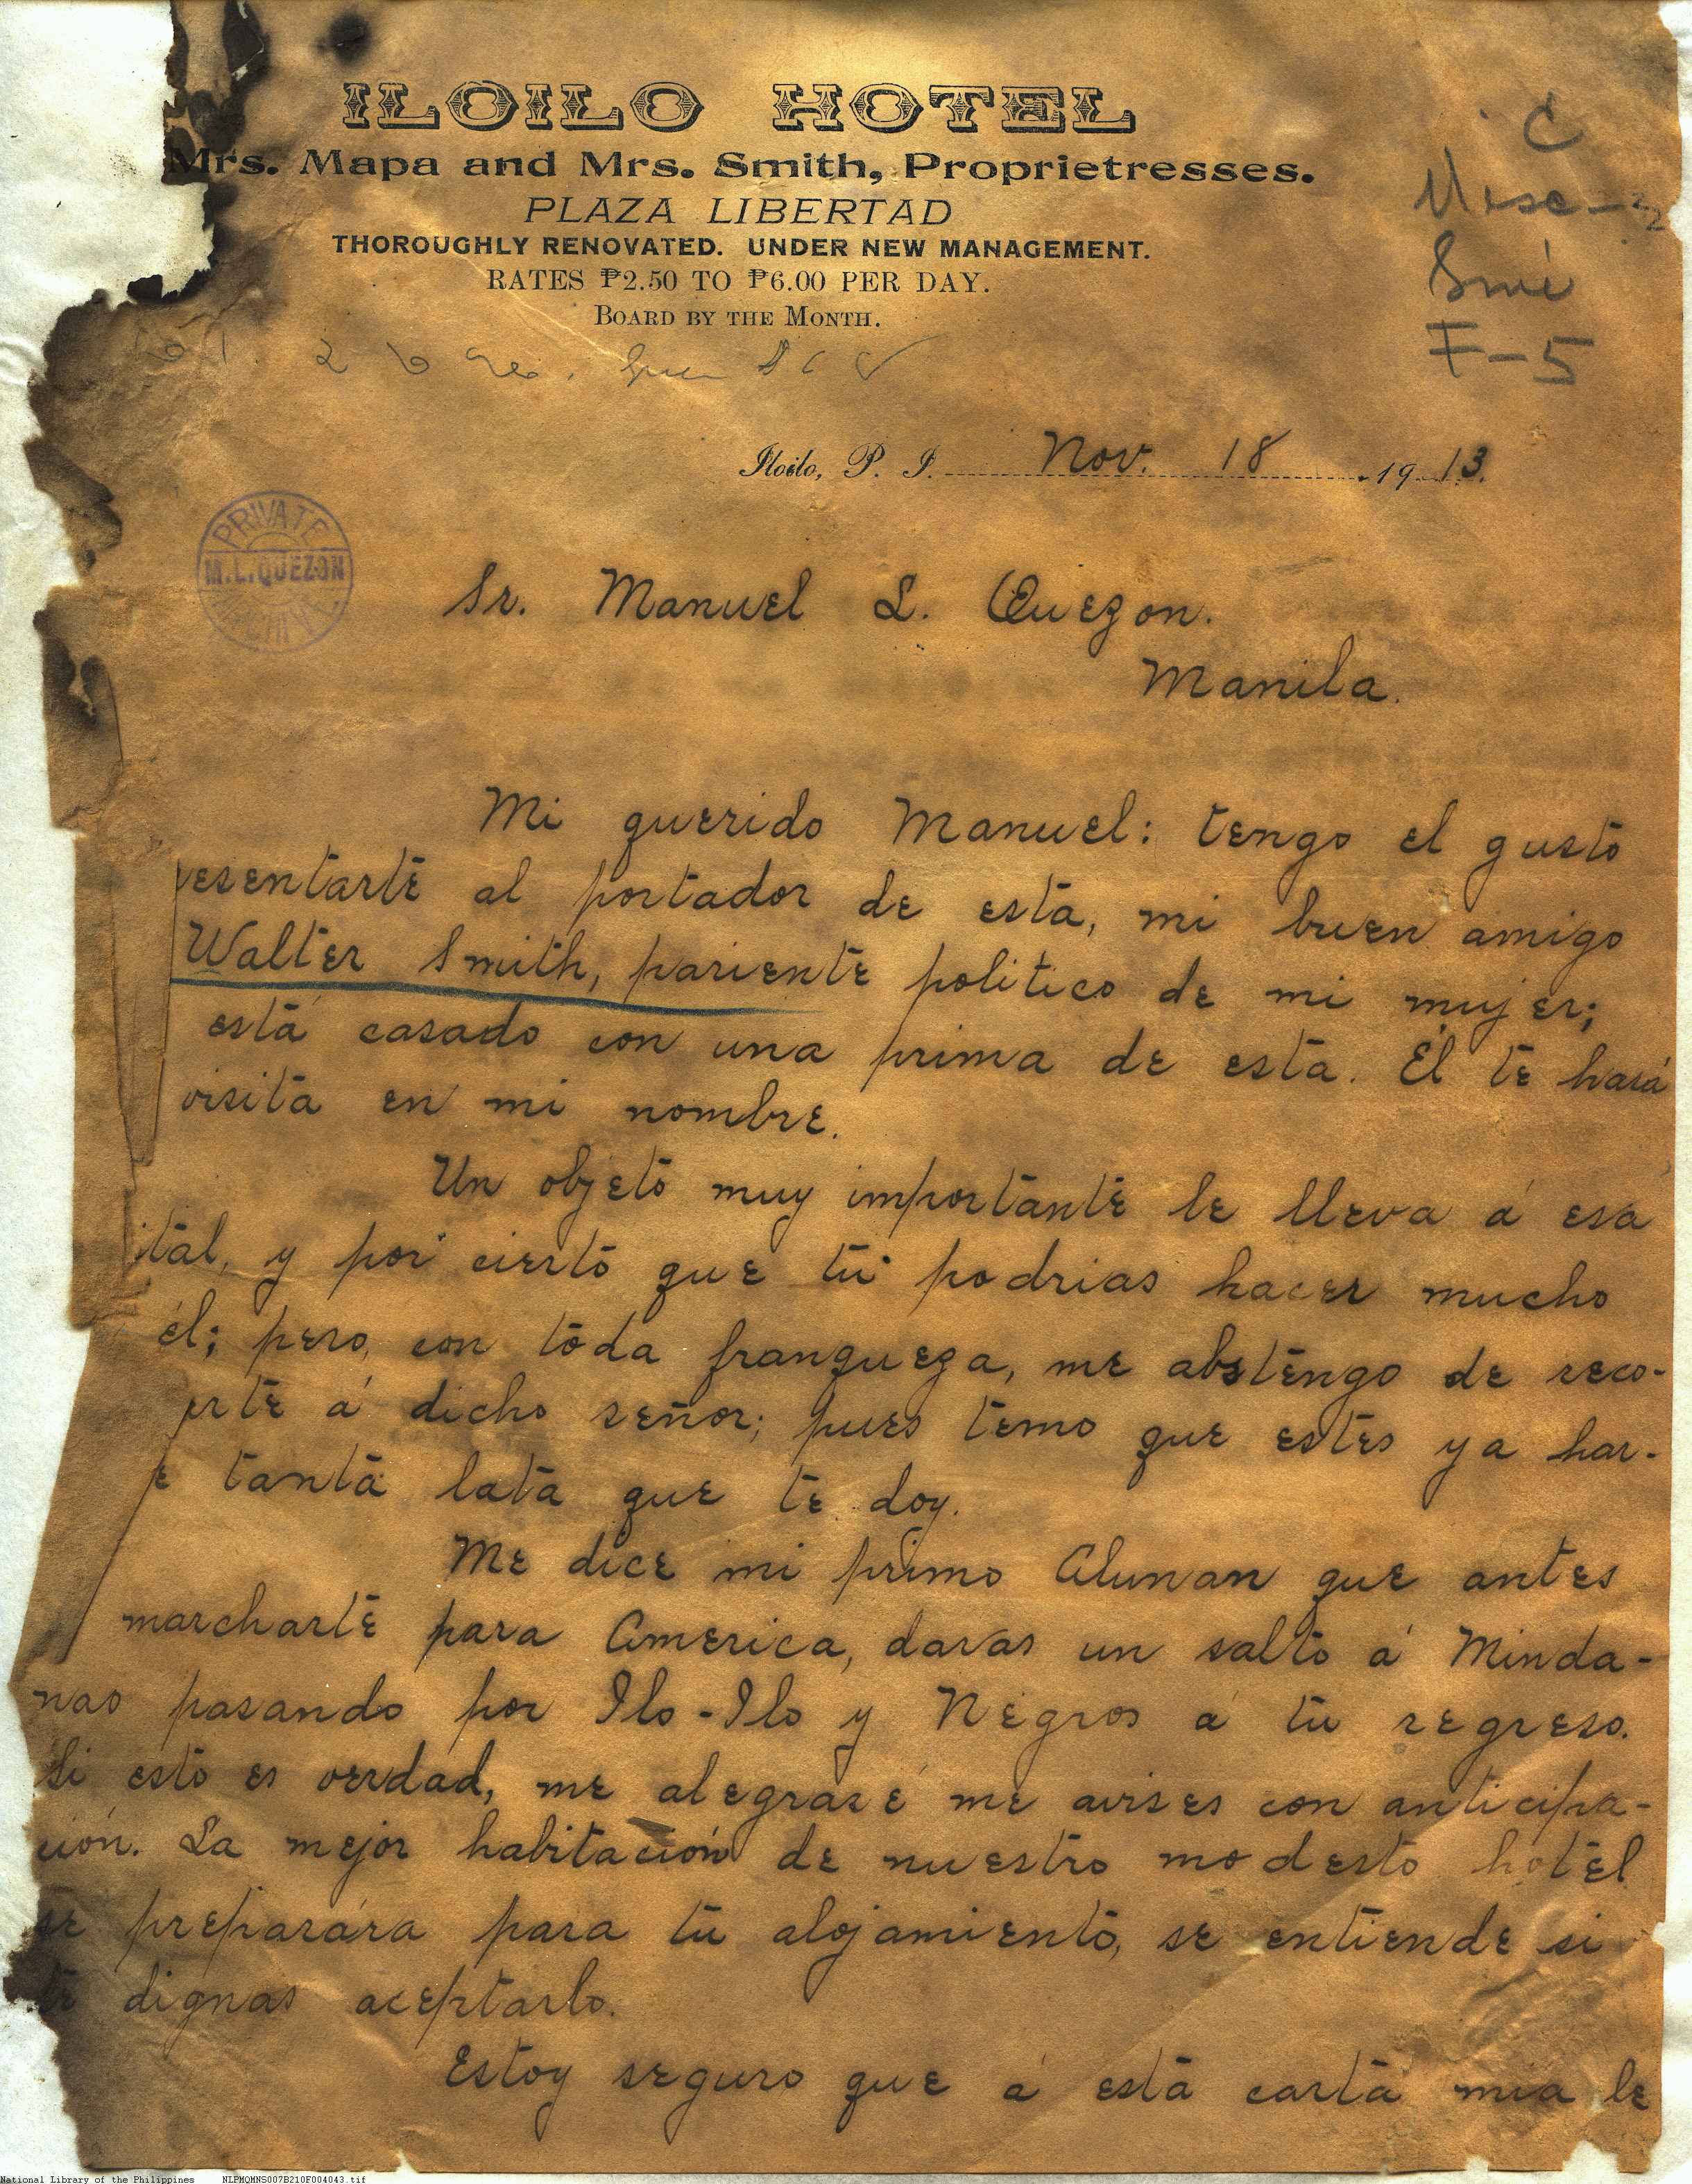 ILOILO HOTEL
Mrs. Mapa and Mrs. Smith, Proprietresses.
PLAZA LIBERTAD
THOROUGHLY RENOVATED. UNDER NEW MANAGEMENT.
RATES ₱2.50 TO ₱6.00 PER DAY.
BOARD BY THE MONTH.
C
F-5
Iloilo, P. I. Nov. 18 1913.
PRIVATE
M.L.QUEZON
Sr. Manuel L. Quezon.
Manila.
Mi querido Manuel: tengo el gusto
resentarte al portador de esta, mi buen amigo
Walter Smith, pariente politico de mi mujer;
está casado con una prima de esta. Él te hará
visita en mi nombre.
Un objeto muy importante le lleva á esa
ital, y por cierto que tú podrias hacer mucho
él; pero, con toda franqueza, me abstengo de reco-
rte á dicho señor; pues temo que estes ya har-
e tanta lata que te doy.
Me dice mi primo Alunan que antes
marcharte para America, daras un salto á Minda-
nao pasando por Ilo-Ilo y Negros á tu regreso.
Si esto es verdad, me alegraré me avises con anticipa-
ción. La mejor habitación de nuestro modesto hotel
se preparára para tu alojamiento, se entiende si
te dignas aceptarlo.
Estoy seguro que á esta carta mia le
National Library of the Philippines NLPMQMNS007B210F004043.tif